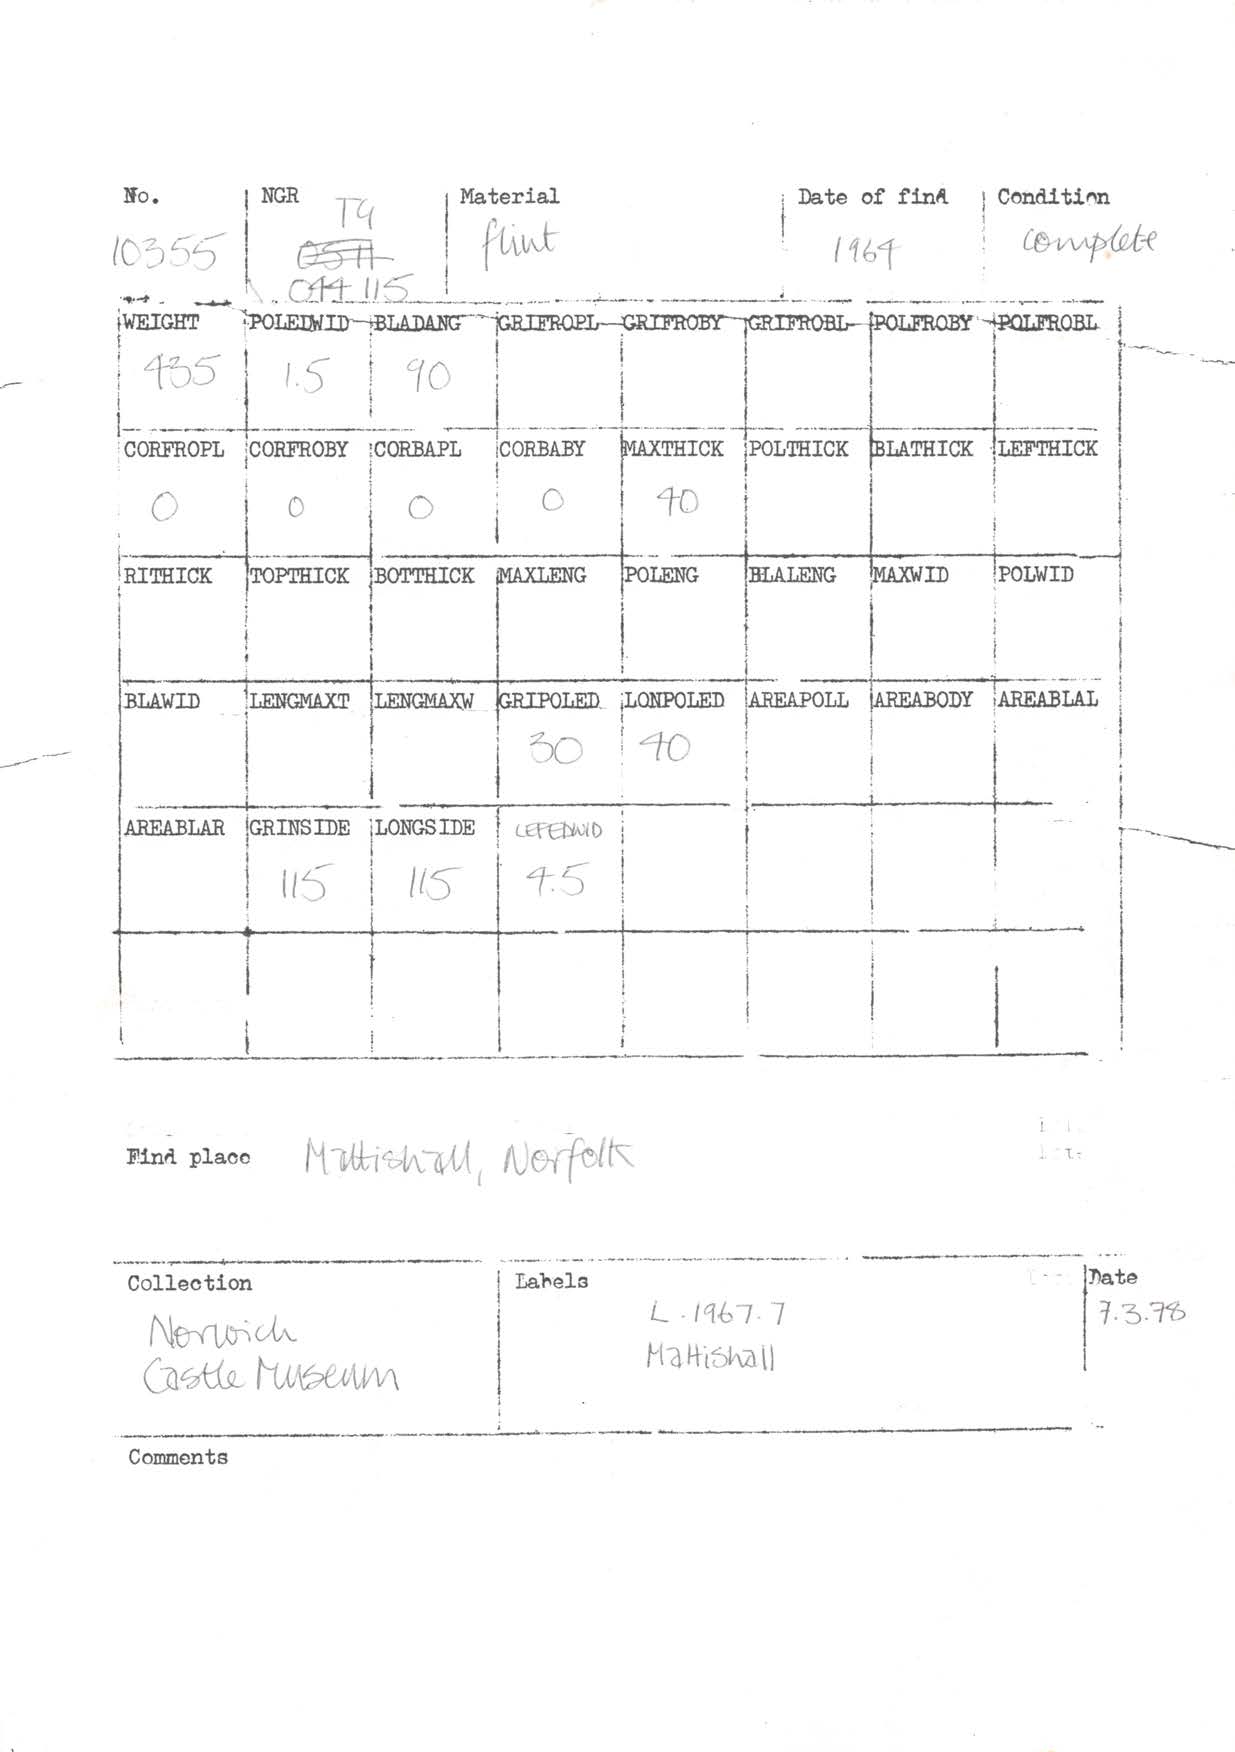 No. NGR Material Date of find Condition
10355 TG flint 1964 complete
0511
044 115
WEIGHT POLEDWID BLADANG GRIFROPL GRIFROBY GRIFROBL POLFROBY POLFROBL
435 1.5 90
CORFROPL CORFROBY CORBAPL CORBABY MAXTHICK POLTHICK BLATHICK LEFTHICK
0 0 0 0 40
RITHICK TOPTHICK BOTTHICK MAXLENG POLENG BLALENG MAXWID POLWID
BLAWID LENGMAXT LENGMAXW GRIPOLED LONPOLED AREAPOLL AREABODY AREABLAL
30 40
AREABLAR GRINSIDE LONGSIDE LEFEDWID
115 115 4.5
Find place Mattishall, Norfolk
Collection Labels Date
Norwich L.1967.7 7.3.78
Castle Museum Mattishall
Comments